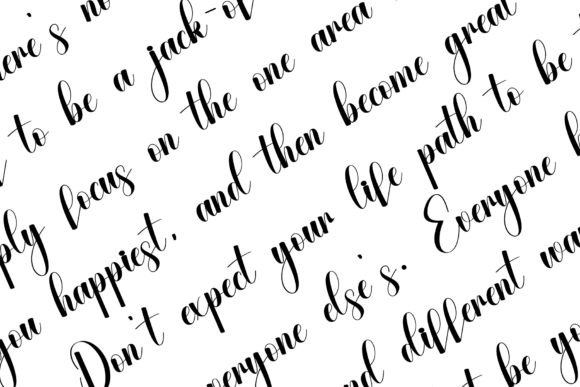 here's no
to be a jack-of
ply focus on the one area
you happiest, and then become great
Don't expect your life path to be
everyone else's. Everyone
nd different wa
t be yo